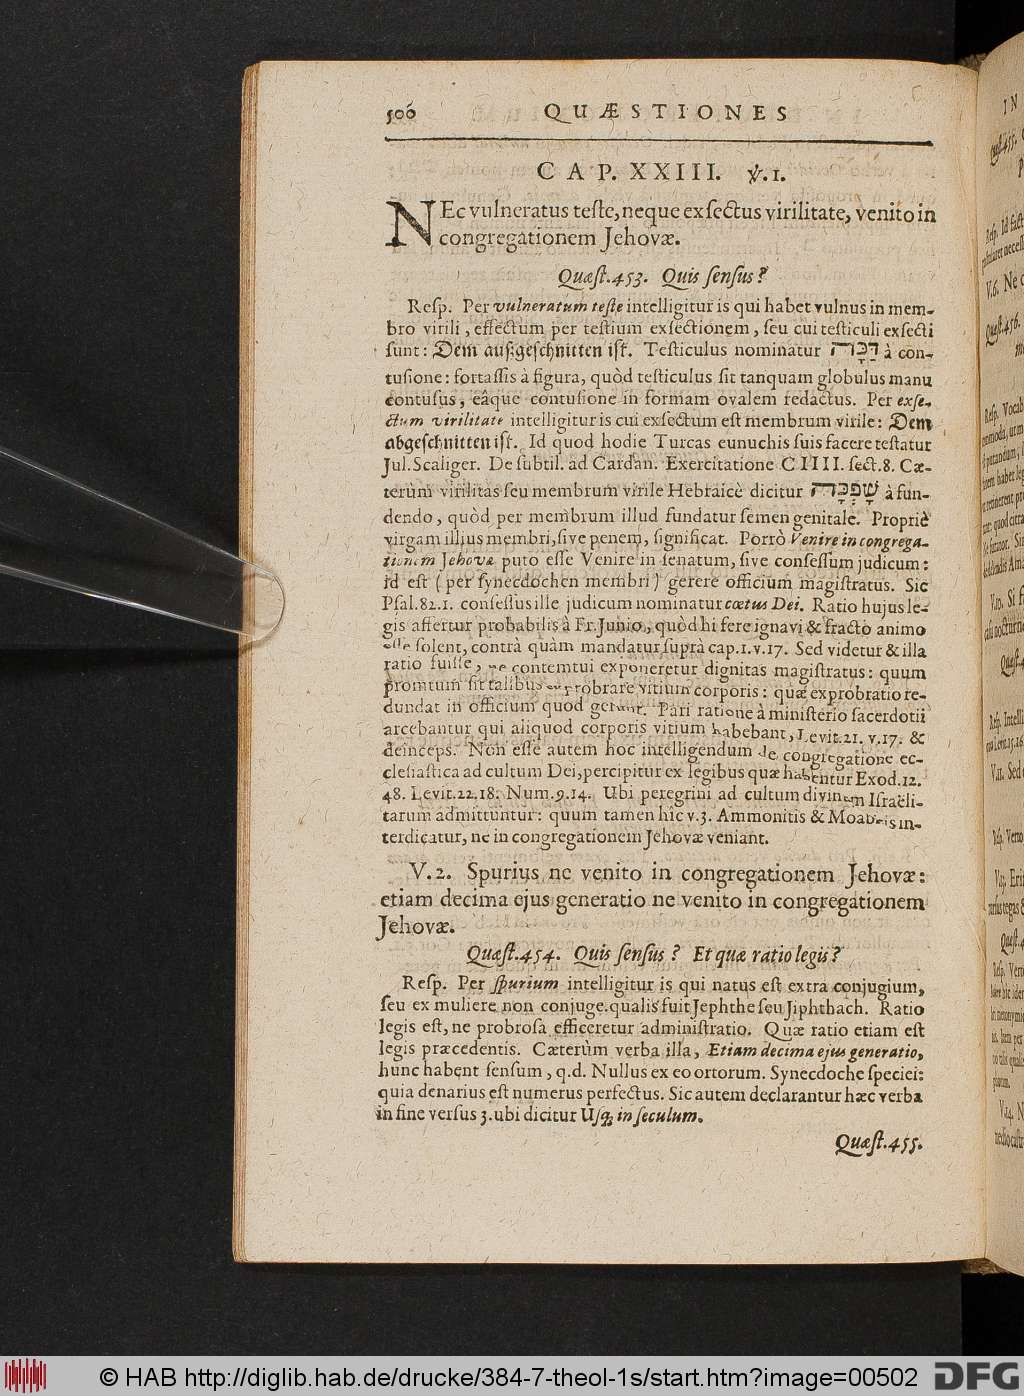 506 QUÆSTIONES
CAP. XXIII. ℣.1.
NEc vulneratus teste, neque exsectus virilitate, venito in
congregationem Jehovæ.
Quæst.453. Quis sensus?
Resp. Per vulneratum teste intelligitur is qui habet vulnus in mem-
bro virili, effectum per testium exsectionem, seu cui testiculi exsecti
sunt: Dem außgeschnitten ist. Testiculus nominatur דַּכָּה à con-
tusione: fortassis à figura, quòd testiculus sit tanquam globulus manu
contusus, eâque contusione in formam ovalem redactus. Per exse-
ctum virilitate intelligitur is cui exsectum est membrum virile: Dem
abgeschnitten ist. Id quod hodie Turcas eunuchis suis facere testatur
Jul. Scaliger. De subtil. ad Cardan. Exercitatione CIIII. sect.8. Cæ-
terùm virilitas seu membrum virile Hebraicè dicitur שָׁפְכָה à fun-
dendo, quòd per membrum illud fundatur semen genitale. Propriè
virgam illius membri, sive penem, significat. Porrò Venire in congrega-
tionem Jehovæ puto esse Venire in senatum, sive consessum judicum:
id est (per synecdochen membri) gerere officium magistratus. Sic
Psal.82.1. consessus ille judicum nominatur cœtus Dei. Ratio hujus le-
gis affertur probabilis à Fr. Junio, quòd hi fere ignavi & fracto animo
esse solent, contrà quàm mandatur suprà cap.1.v.17. Sed videtur & illa
ratio fuisse, ne contemtui exponeretur dignitas magistratus: quum
promtum sit talibus exprobrare vitium corporis: quæ exprobratio re-
dundat in officium quod gerunt. Pari ratione à ministerio sacerdotii
arcebantur qui aliquod corporis vitium habebant, Levit.21. v.17. &
deinceps. Non esse autem hoc intelligendum de congregatione ec-
clesiastica ad cultum Dei, percipitur ex legibus quæ habentur Exod.12.
48. Levit.22.18. Num.9.14. Ubi peregrini ad cultum divinum Israëli-
tarum admittuntur: quum tamen hîc v.3. Ammonitis & Moabitis in-
terdicatur, ne in congregationem Jehovæ veniant.
V.2. Spurius ne venito in congregationem Jehovæ:
etiam decima ejus generatio ne venito in congregationem
Jehovæ.
Quæst.454. Quis sensus? Et quæ ratio legis?
Resp. Per spurium intelligitur is qui natus est extra conjugium,
seu ex muliere non conjuge. qualis fuit Jephthe seu Jiphthach. Ratio
legis est, ne probrosa efficeretur administratio. Quæ ratio etiam est
legis præcedentis. Cæterùm verba illa, Etiam decima ejus generatio,
hunc habent sensum, q.d. Nullus ex eo ortorum. Synecdoche speciei:
quia denarius est numerus perfectus. Sic autem declarantur hæc verba
in fine versus 3. ubi dicitur Usq; in seculum.
Quæst.455.
© HAB http://diglib.hab.de/drucke/384-7-theol-1s/start.htm?image=00502 DFG